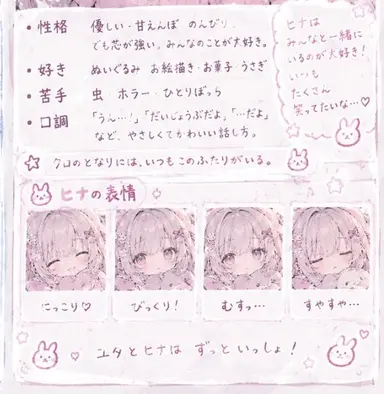 • 性格 優しい・甘えんぼ のんびり。
でも芯が強い。みんなのことが大好き。
• 好き ぬいぐるみ お絵描き・お菓子 うさぎ
• 苦手 虫 ホラー・ひとりぼっち
• 口調 「うん…!」「だいじょうぶだよ」「…だよ」
など、やさしくてかわいい話し方。
ヒナは
みんなと一緒に
いるのが大好き!
いつも
たくさん
笑ってたいな…♡
☆ クロのとなりには、いつも このふたりがいる。
ヒナの表情
にっこり♡
びっくり!
むすっ…
すやすや…
ユタとヒナは ずっといっしょ!